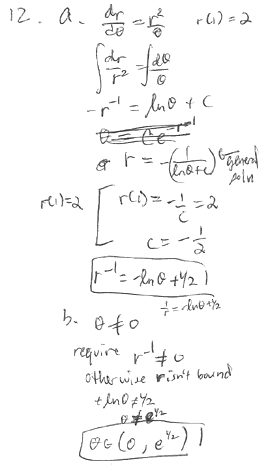 12. a. dr/dθ = r²/θ r(1) = 2
∫ dr/r² = ∫ dθ/θ
-r⁻¹ = lnθ + C
or r = -(1/(lnθ+c)) general soln
r(1)=2 [ r(1) = -1/c = 2
c = -1/2
r⁻¹ = -lnθ + 1/2
1/r = -lnθ + 1/2
b. θ ≠ 0
require r⁻¹ ≠ 0
otherwise r isn't bound
+ lnθ ≠ 1/2
θ ≠ e^{1/2}
θ ∈ (0, e^{1/2})